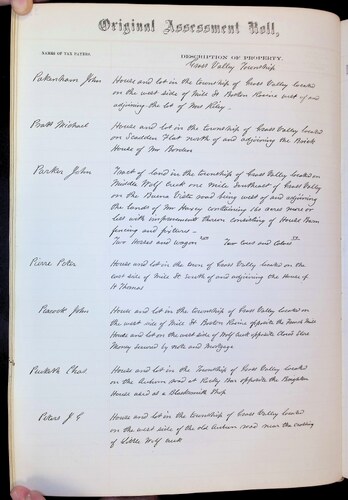 Original Assessment Roll,
NAMES OF TAX PAYERS.
DESCRIPTION OF PROPERTY.
Grass Valley Township
Pakenham John
House and lot in the township of Grass Valley located
on the west side of Mill St Boston Ravine west of and
adjoining the lot of Mrs Riley
Pratt Michael
House and lot in the township of Grass Valley located
on Scadden Flat north of and adjoining the Brick
House of Mr Borden
Parker John
Tract of land in the township of Grass Valley located on
Middle Wolf Creek one mile Southeast of Grass Valley
on the Buena Vista road being west of and adjoining
the lands of Mr containing ten acres more or
less with improvements thereon consisting of House Barn
fencing and fixtures
Two Horses and wagon Two cows and calves
Pierre Peter
House and lot in the town of Grass Valley located on the
east side of Mill St south of and adjoining the House of
H Thomas
Peacock John
House and lot in the township of Grass Valley located on
the west side of Mill St Boston Ravine opposite the Mill
House and lot on the west side of Wolf Creek opposite
Money secured by note and Mortgage
Puckette Chas
House and lot in the Township of Grass Valley located
on the Auburn road at Rocky Bar opposite the
House used as a Blacksmith Shop
Peters J G
House and lot in the township of Grass Valley located
on the west side of the old Auburn road near the crossing
of Little Wolf Creek